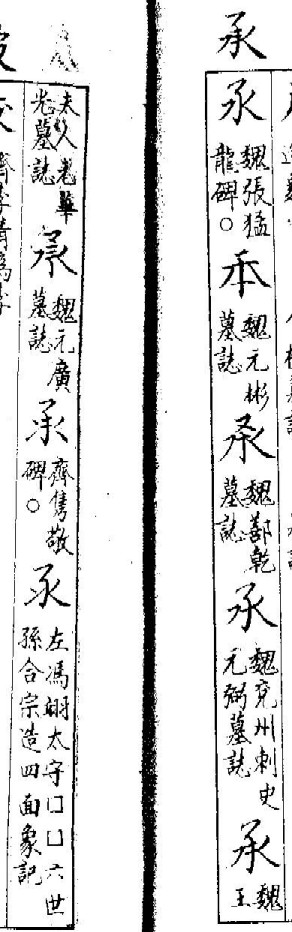 承
承 魏張猛龍碑。
承 魏元彬墓誌
承 魏鄯乾墓誌
承 魏兗州刺史元弼墓誌
承 魏王
夫人元華光墓誌
承 魏元廣墓誌
承 齊雋敬碑。
承 左馮翊太守囗囗六世孫合宗造四面象記